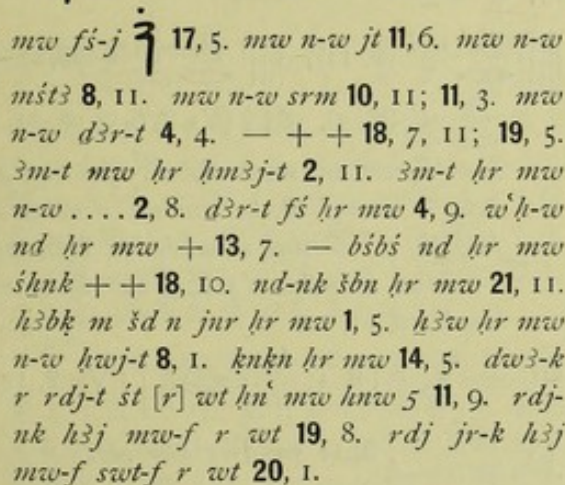 mw fś-j 17, 5. mw n-w jt 11,6. mw n-w
mśtꜣ 8, 11. mw n-w srm 10, 11; 11, 3. mw
n-w dꜣr-t 4, 4. — + + 18, 7, 11; 19, 5.
ꜣm-t mw ḥr ḥmꜣj-t 2, 11. ꜣm-t ḥr mw
n-w .... 2, 8. dꜣr-t fś ḥr mw 4, 9. wꜥḥ-w
nd ḥr mw + 13, 7. — bśbś nd ḥr mw
śḥnk + + 18, 10. nd-nk šbn ḥr mw 21, 11.
ḥꜣbḳ m šd n jnr ḥr mw 1, 5. ẖꜣw ḥr mw
n-w ḥwj-t 8, 1. ḳnḳn ḥr mw 14, 5. dwꜣ-k
r rdj-t śt [r] wt ḥnꜥ mw hnw 5 11, 9. rdj-
nk hꜣj mw-f r wt 19, 8. rdj jr-k hꜣj
mw-f swt-f r wt 20, 1.